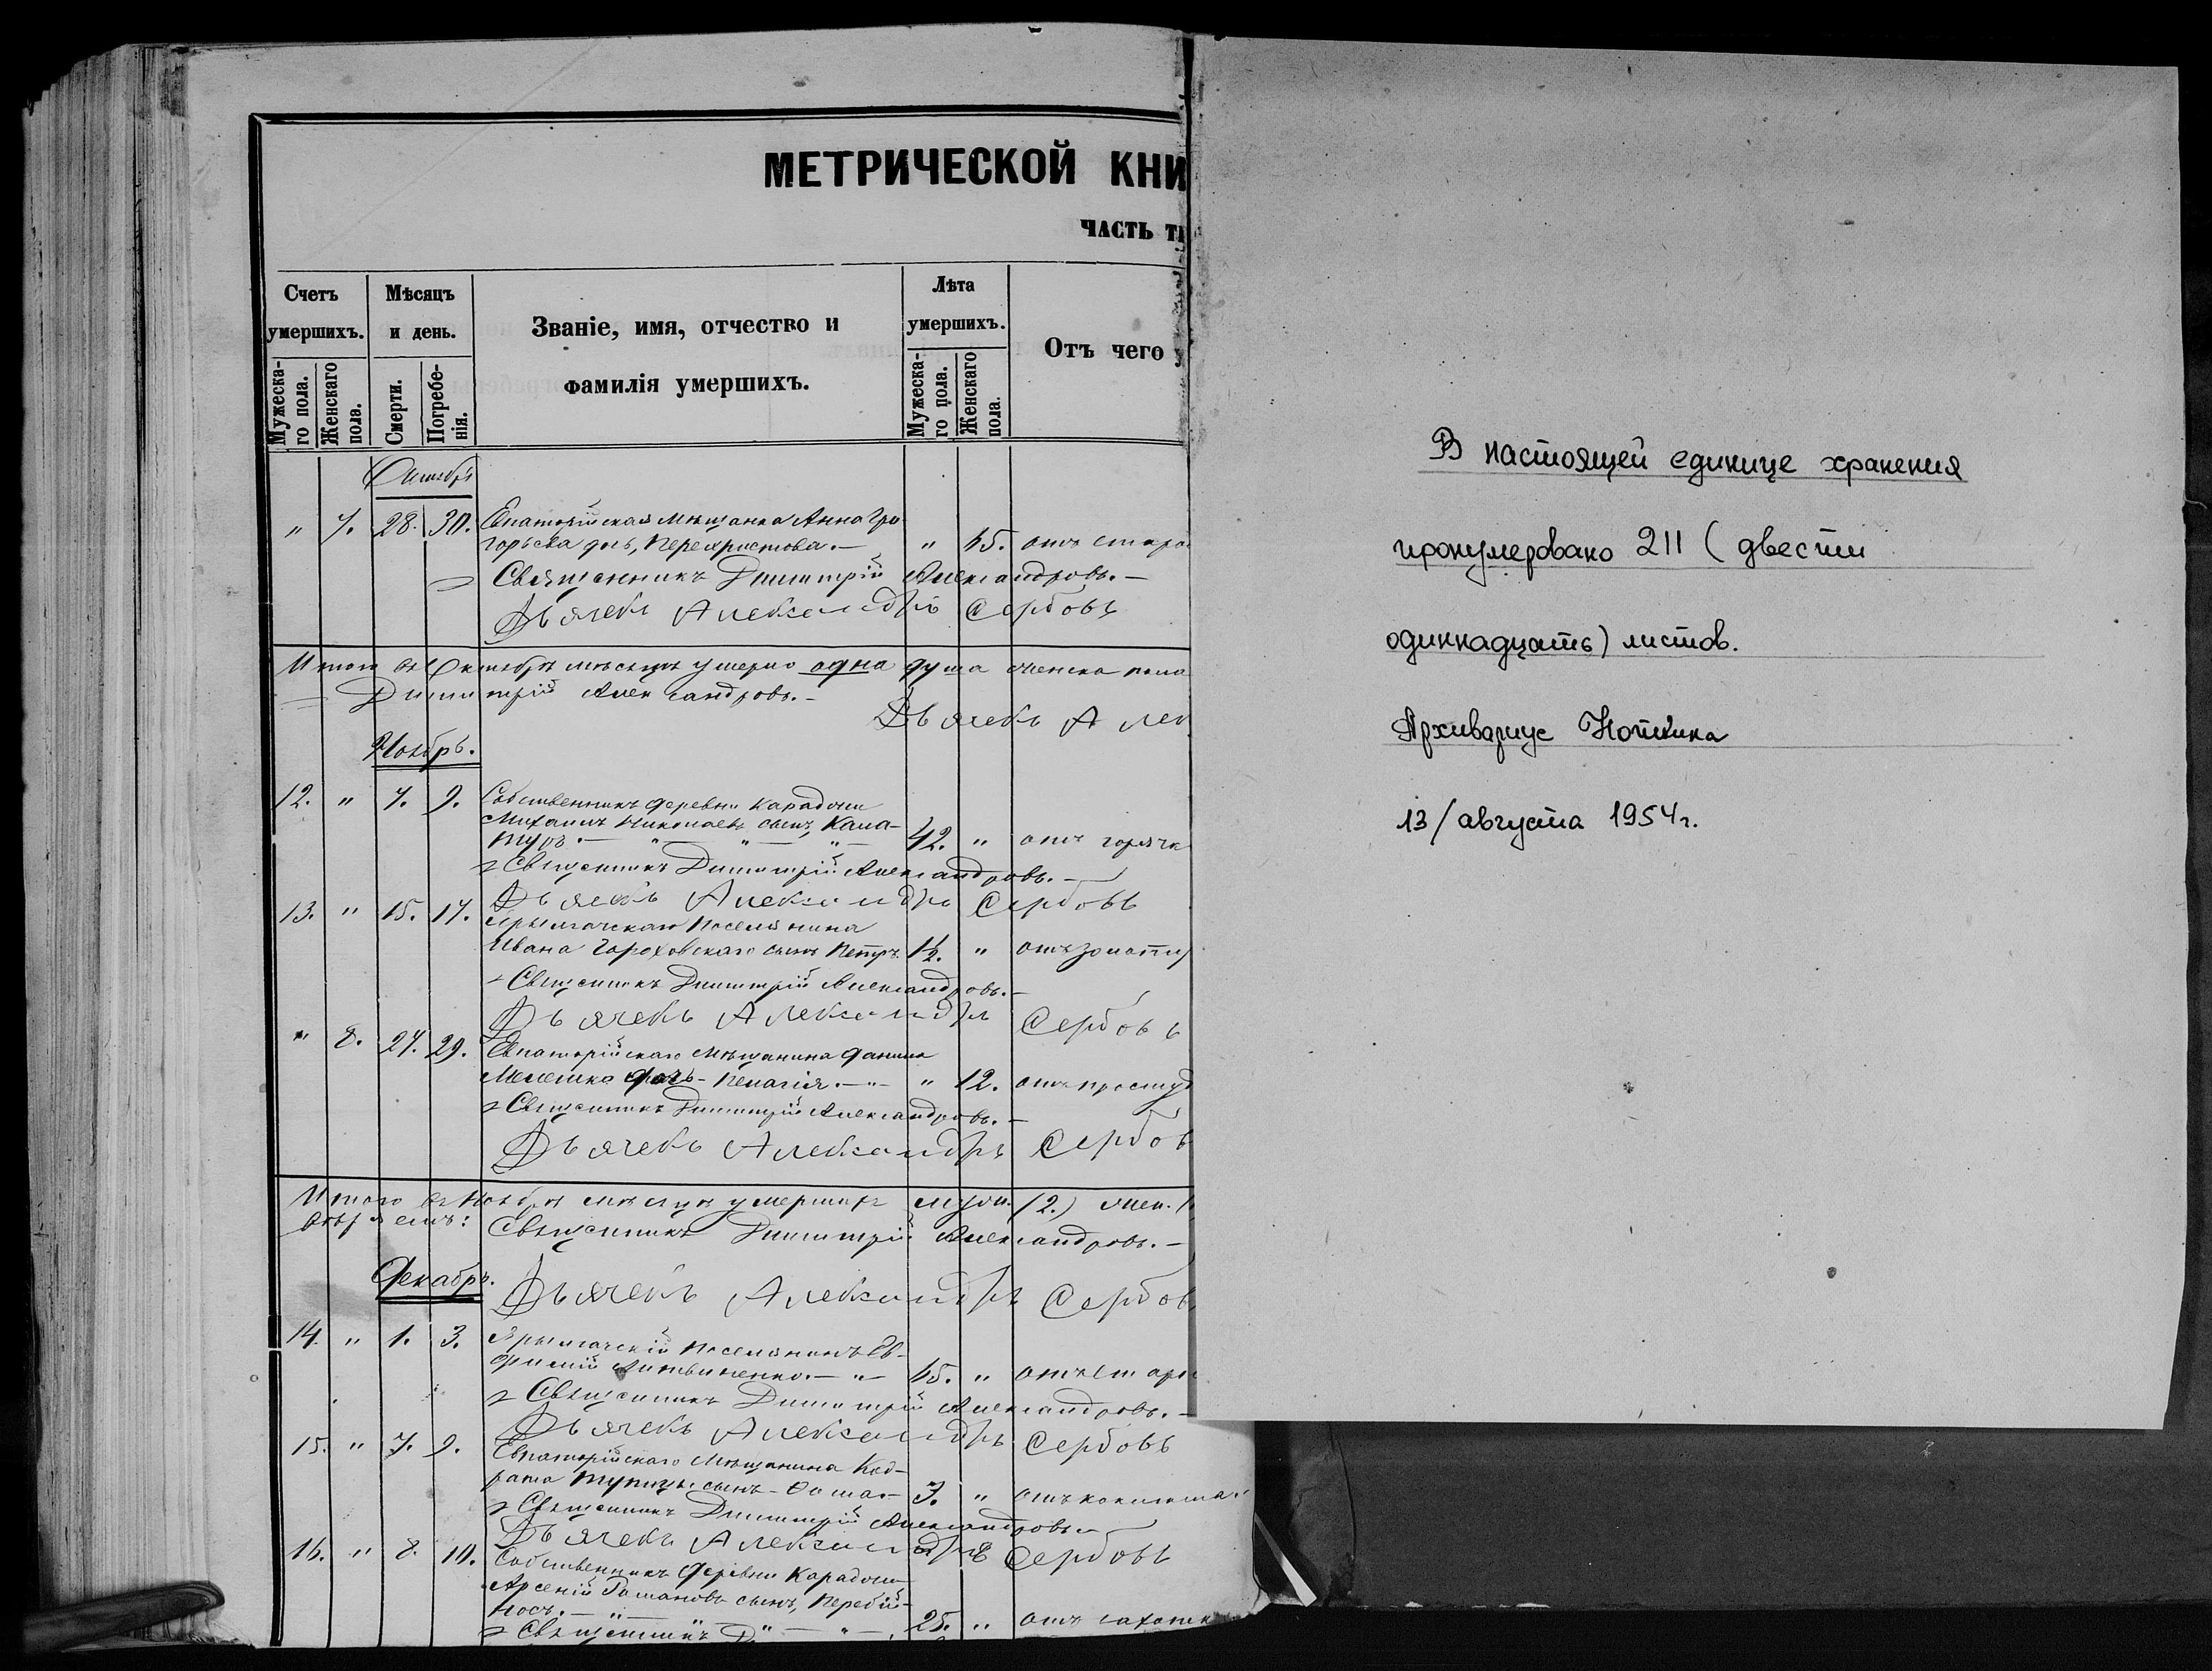 МЕТРИЧЕСКОЙ КНИ
ЧАСТЬ ТР
Счетъ умершихъ.
Мужеска-го пола.
Женскаго пола.
Мѣсяцъ и день.
Смерти.
Погребе-нія.
Званіе, имя, отчество и
фамилія умершихъ.
Лѣта умершихъ.
Мужеска-го пола.
Женскаго пола.
Отъ чего у
Октябрь
" 7. 28. 30. Евпаторійская мѣщанка Анна Гри
горьева дочь, Перехристова.— " 65. отъ старо
Священникъ Димитрій Александровъ.—
Дьячекъ Александръ Сербовъ
Итого въ Октябрѣ мѣсяцѣ умерло одна душа женска пола
Димитрій Александровъ.—
Дьячекъ Алек
Ноябрь.
12. " 7. 9. Собственникъ деревни Карадочи
Михаилъ Николаевъ сынъ, Кала-
туръ.— " — " — " — 42. " отъ горячк
Священникъ Димитрій Александровъ.—
Дьячекъ Александръ Сербовъ
13. " 15. 17. Ярылгачскаго поселянина
Ивана Гороховскаго сынъ Петръ. ½. " отъ золоту
Священникъ Димитрій Александровъ.—
Дьячекъ Александръ Сербовъ
" 8. 27. 29. Евпаторійскаго мѣщанина Данила
Мелешко дочь - Пелагія.— " — " 12. отъ простуд
Священникъ Димитрій Александровъ.—
Дьячекъ Александръ Сербов
Итого въ Ноябрѣ мѣсяцѣ умершихъ муж. (2.) жен. 1
Священникъ Димитрій Александровъ.—
Декабрь.
Дьячекъ Александръ Сербов
14. " 1. 3. Ярылгачскій поселянинъ Ев-
фимій Литвиненко.— " — 65. " отъ стар
Священникъ Димитрій Александровъ.—
Дьячекъ Александръ Сербовъ
15. " 7. 9. Евпаторійскаго мѣщанина Код-
рата сынъ - Ѳома.— 3. " отъ
Священникъ Димитрій Александровъ
Дьячекъ Александръ Сербовъ
16. " 8. 10. Собственникъ деревни Карадочи
Арсеній Романовъ сынъ, Перебій-
носъ.— " — " — " — 25. " отъ чахотк
Священникъ Д
В настоящей единице хранения
пронумеровано 211 (двести
одиннадцать) листов.
Архивариус
13/августа 1954г.